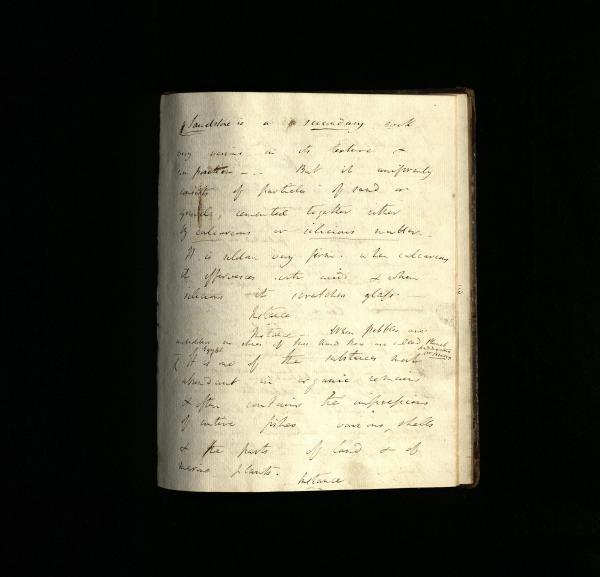 Sandstone is a secondary rock
very various in its texture &
But it uniformly
consists of particles of sand or
gravel, cemented together either
by calcareous or silicious matter.
It is seldom very firm. when calcareous
it effervesces with acids & when
silicious it scratches glass. —
Instance
Instance — When pebbles are
imbedded in
It is one of the substances most
abundant in organic remains
& often contains the impressions
of entire fishes various, shells
& the parts of land & of
marine plants.
Instance